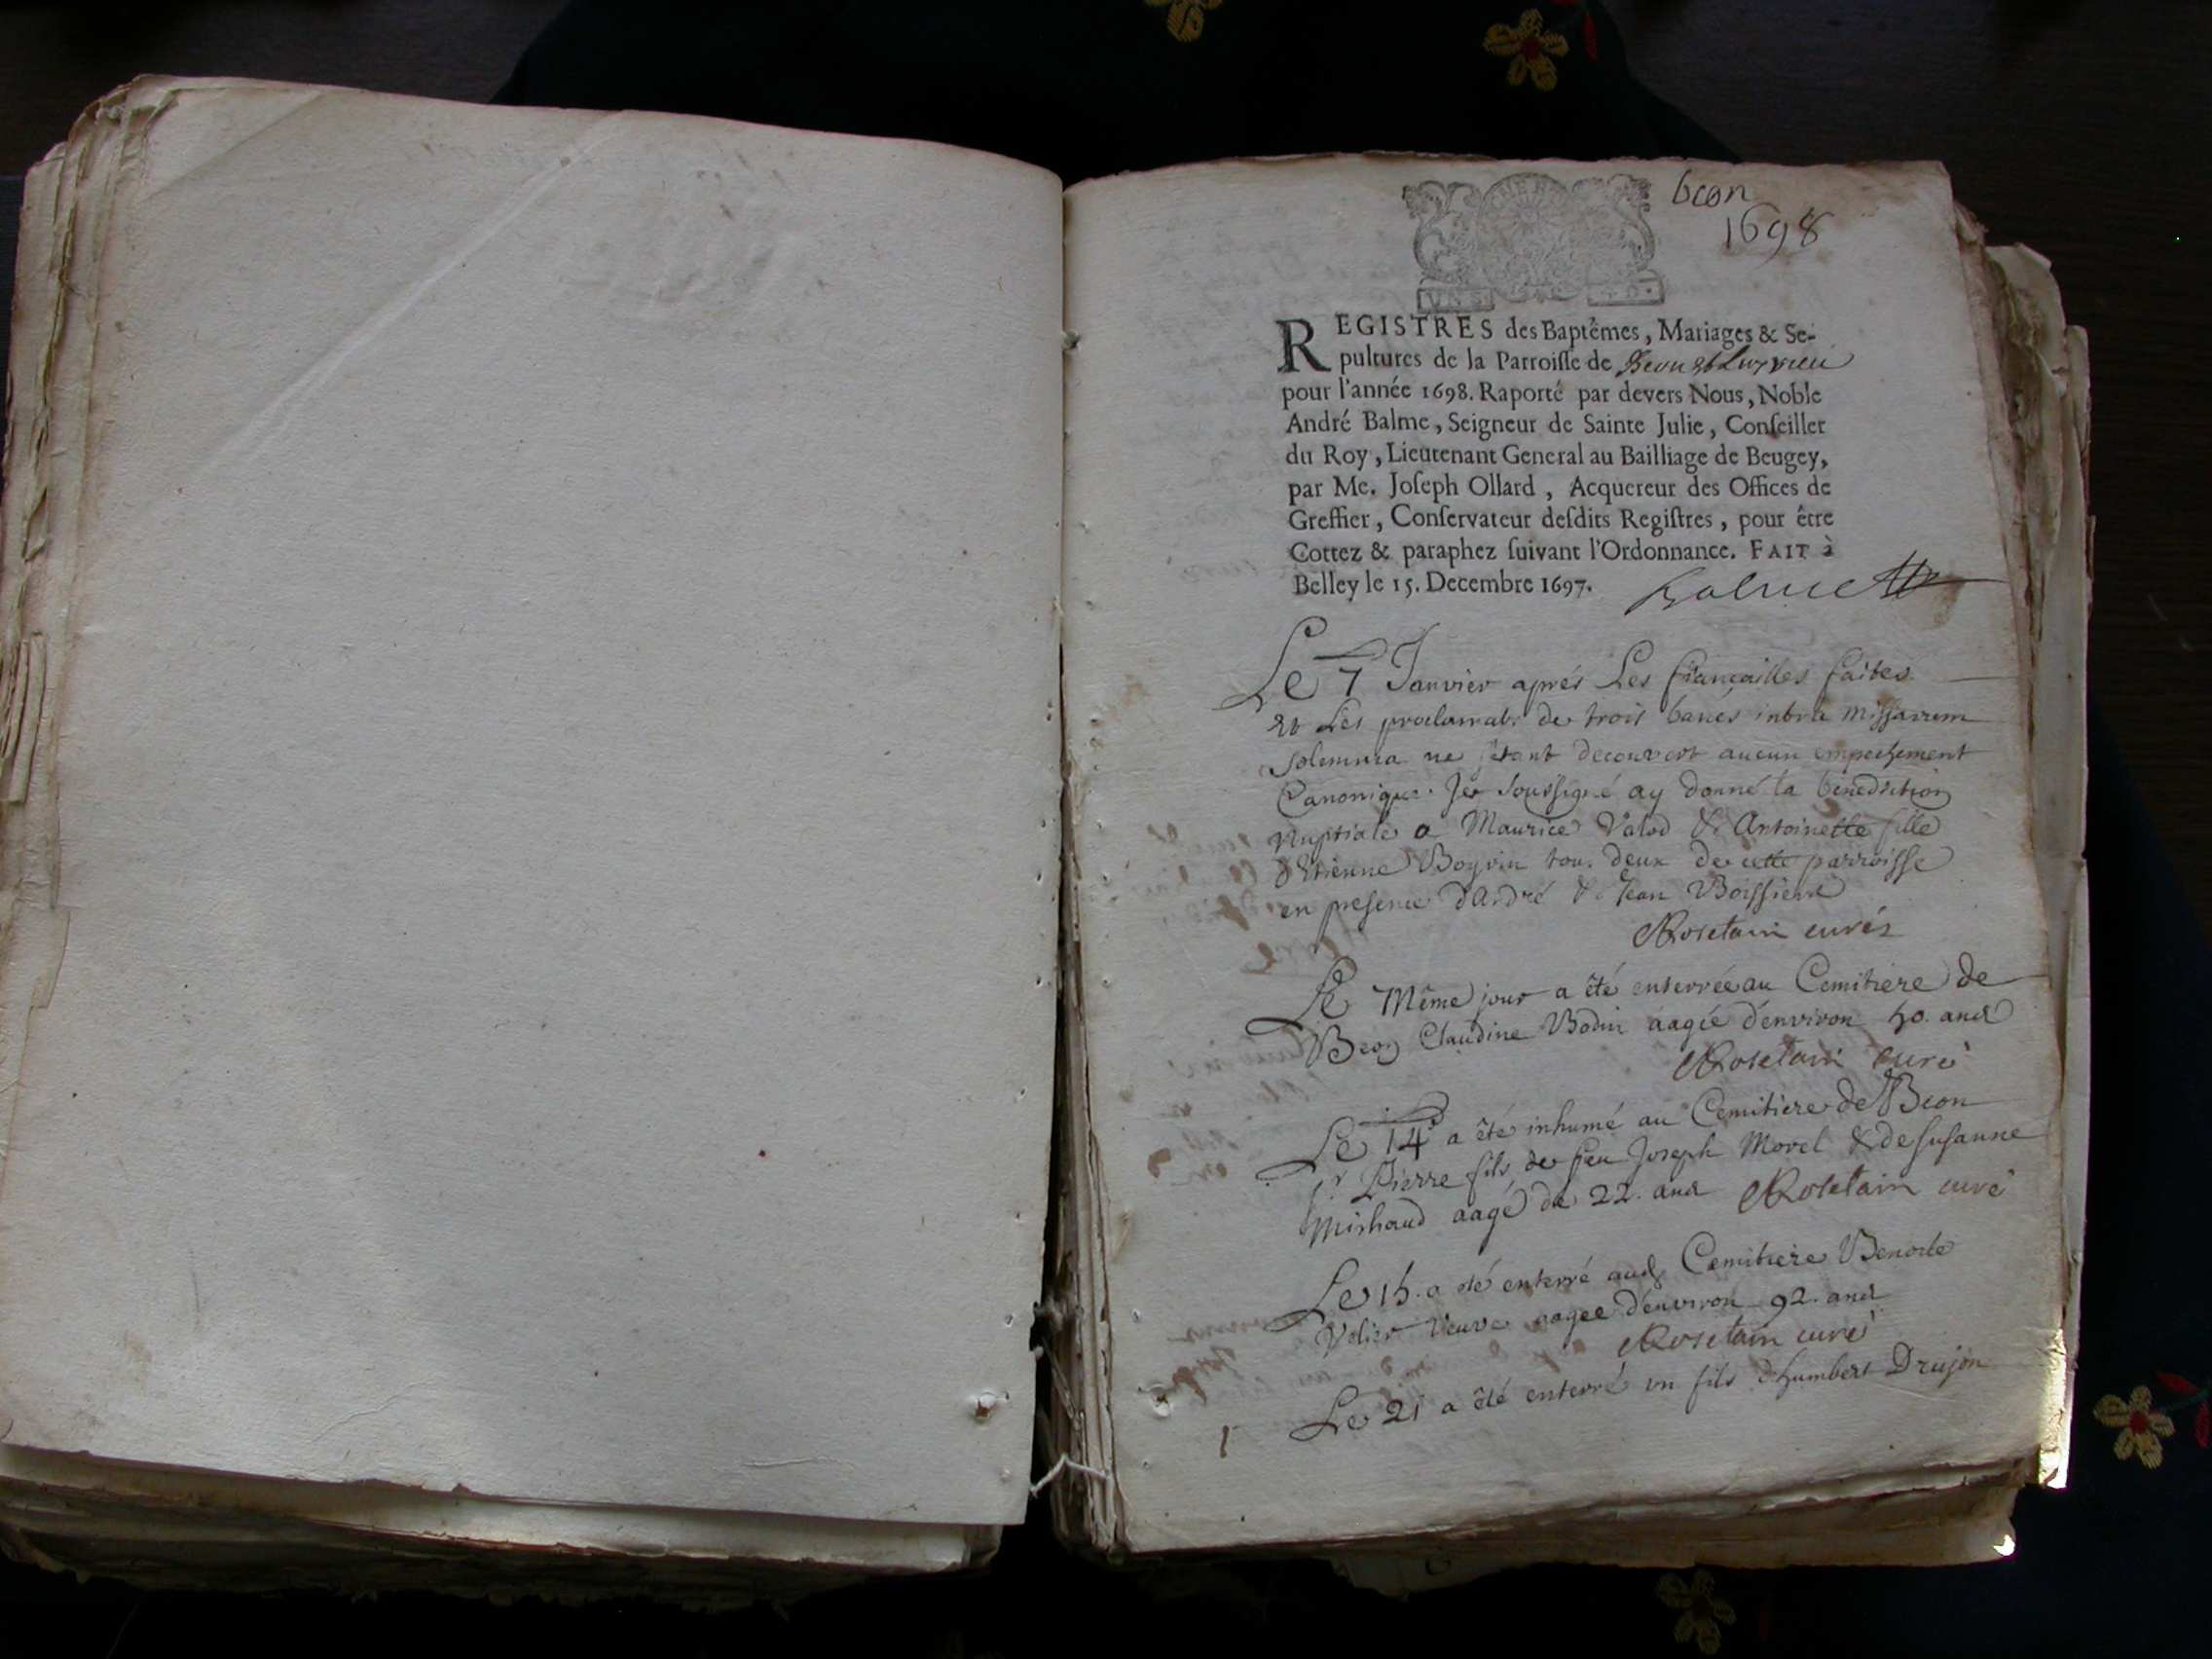 beon
1698
VN S. 4 D.
REGISTRES des Baptêmes, Mariages & Se-
pultures de la Parroisse de Beon et Luyrieu
pour l'année 1698. Raporté par devers Nous, Noble
André Balme, Seigneur de Sainte Julie, Conseiller
du Roy, Lieutenant General au Bailliage de Beugey,
par Me. Joseph Ollard, Acquereur des Offices de
Greffier, Conservateur desdits Registres, pour être
Cottez & paraphez suivant l'Ordonnance. FAIT à
Belley le 15. Decembre 1697. Balme
Le 7 Janvier aprés Les fiançailles faites
et Les proclamat. de trois bancs intra missarum
solemnia ne s'étant decouvert aucun empechement
Canonique. Je soussigné ay donné la benediction
Nuptiale a Maurice Valod & Antoinette fille
d'Etienne Boyvin tous deux de cette parroisse
en presence d'André & Jean Boissieu
Rosetain curé
Le Même jour a été enterrée au Cemitiere de
Beon Claudine Bodin aagée d'environ 50. ans
Rosetain curé
Le 14 a été inhumé au Cemitiere de Beon
Pierre fils de feu Joseph Morel & de Susanne
Mishaud aagé de 22. ans Rosetain curé
Le 15. a été enterré aud. Cemitiere Benoite
Velier Veuve aagee d'environ 92. ans
Rosetain curé
Le 21 a été enterré un fils d'humbert Drujon
1